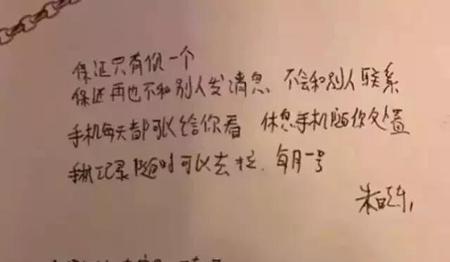 保证只有你一个
保证再也不和别人发消息 不会和别人联系
手机每天都可以给你看 休息手机随你处置
手机记录随时可以去拉、每月一号